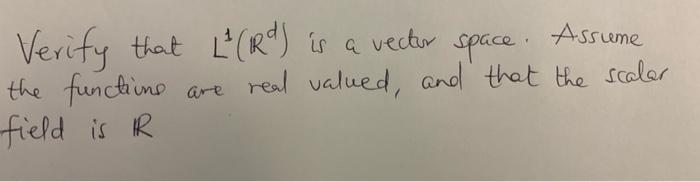 Verify that L¹(ℝᵈ) is a vector space. Assume
the functions are real valued, and that the scalar
field is ℝ